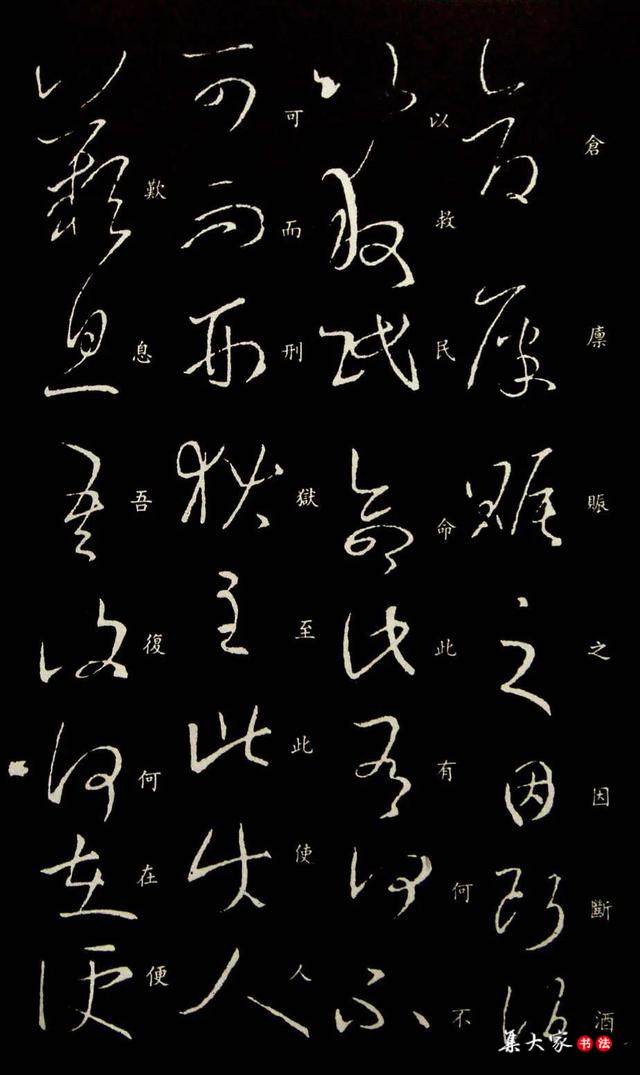 倉廩賑之因斷酒
以救民命此有何不
可而刑獄至此使人
歎息吾復何在便
集大家书法